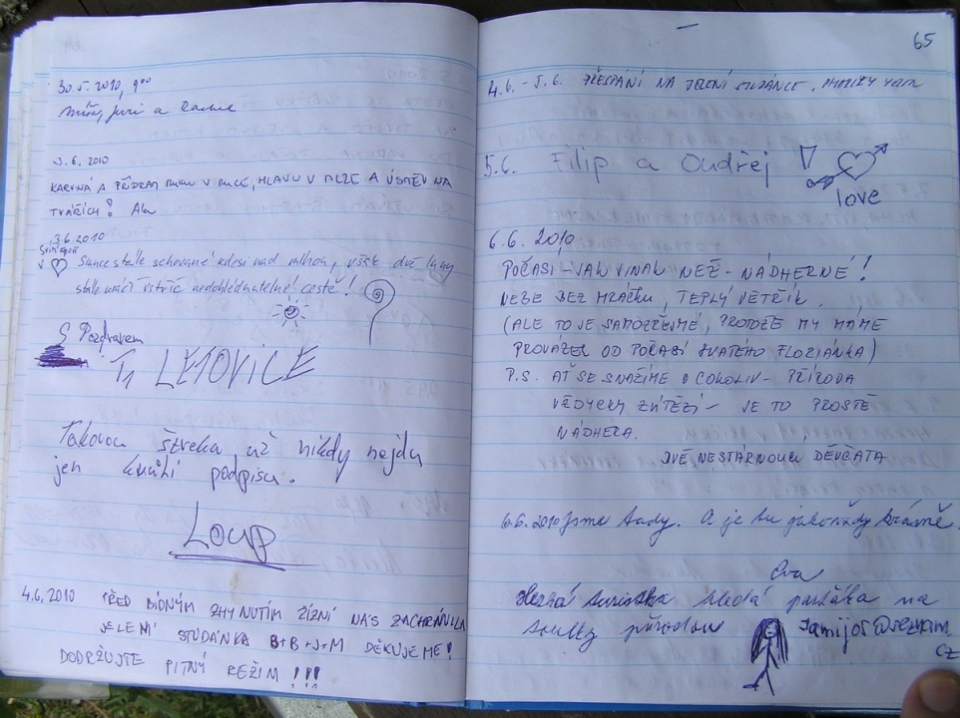 30.5. 2010, 9°°
a
3.6. 2010
KARVINÁ A PŘÍBRAM RUKU V RUCE, HLAVU V MLZE A ÚSMĚV NA
TVÁŘÍCH!
3.6.2010
Slunce stále schované kdesi nad mlhou, však dvě
stále kráčí vstříc nedohlédnutelné cestě!
S Pozdravem
LETOVICE
Takovou štreku už nikdy nejdu
jen kvůli podpisu.
LOUP
4.6, 2010 PŘED BÍDNÝM ZHYNUTÍM ŽÍZNÍ NÁS ZACHRÁNILA
JELENÍ STUDÁNKA B+B+J+M DĚKUJEME!
DODRŽUJTE PITNÝ REŽIM!!!
65
4.6. - 5.6. PŘESPÁNÍ NA JELENÍ STUDÁNCE,
5.6. Filip a Ondřej
love
6.6. 2010
POČASÍ - JAK JINAK NEŽ - NÁDHERNÉ!
NEBE BEZ MRÁČKU, TEPLÝ VĚTŘÍK.
(ALE TO JE SAMOZŘEJMÉ, PROTOŽE MY MÁME
OD POČASÍ SVATÉHO FLORIÁNKA)
P.S. AŤ SE SNAŽÍME O COKOLIV - PŘÍRODA
VŽDYCKY ZVÍTĚZÍ - JE TO PROSTĚ
NÁDHERA.
DVĚ NESTÁRNOUCÍ DĚVČATA
6.6.2010 Jsme tady. A je tu jako vždy krásně.
Eva
Hezká turistka hledá parťáka na
toulky přírodou
CZ